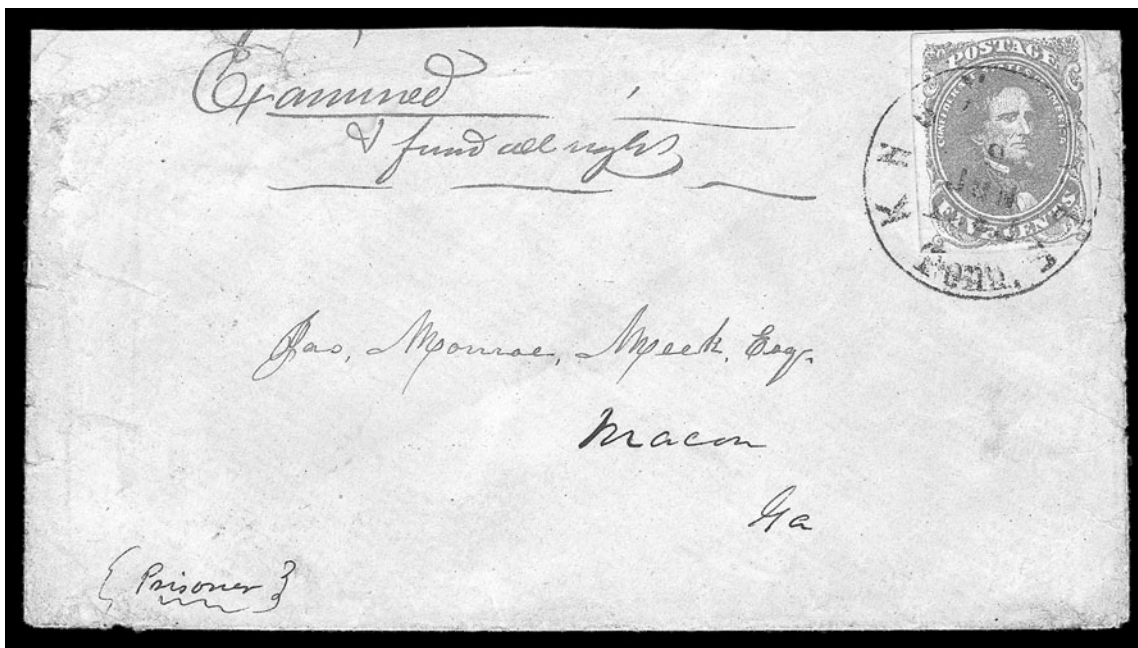 Examined
& fund all right
POSTAGE
CONFEDERATE STATES OF AMERICA
FIVE CENTS
KN
9
JUN
Jas, Monroe, Meek, Esq.
Macon
Ga
{Prisoner}